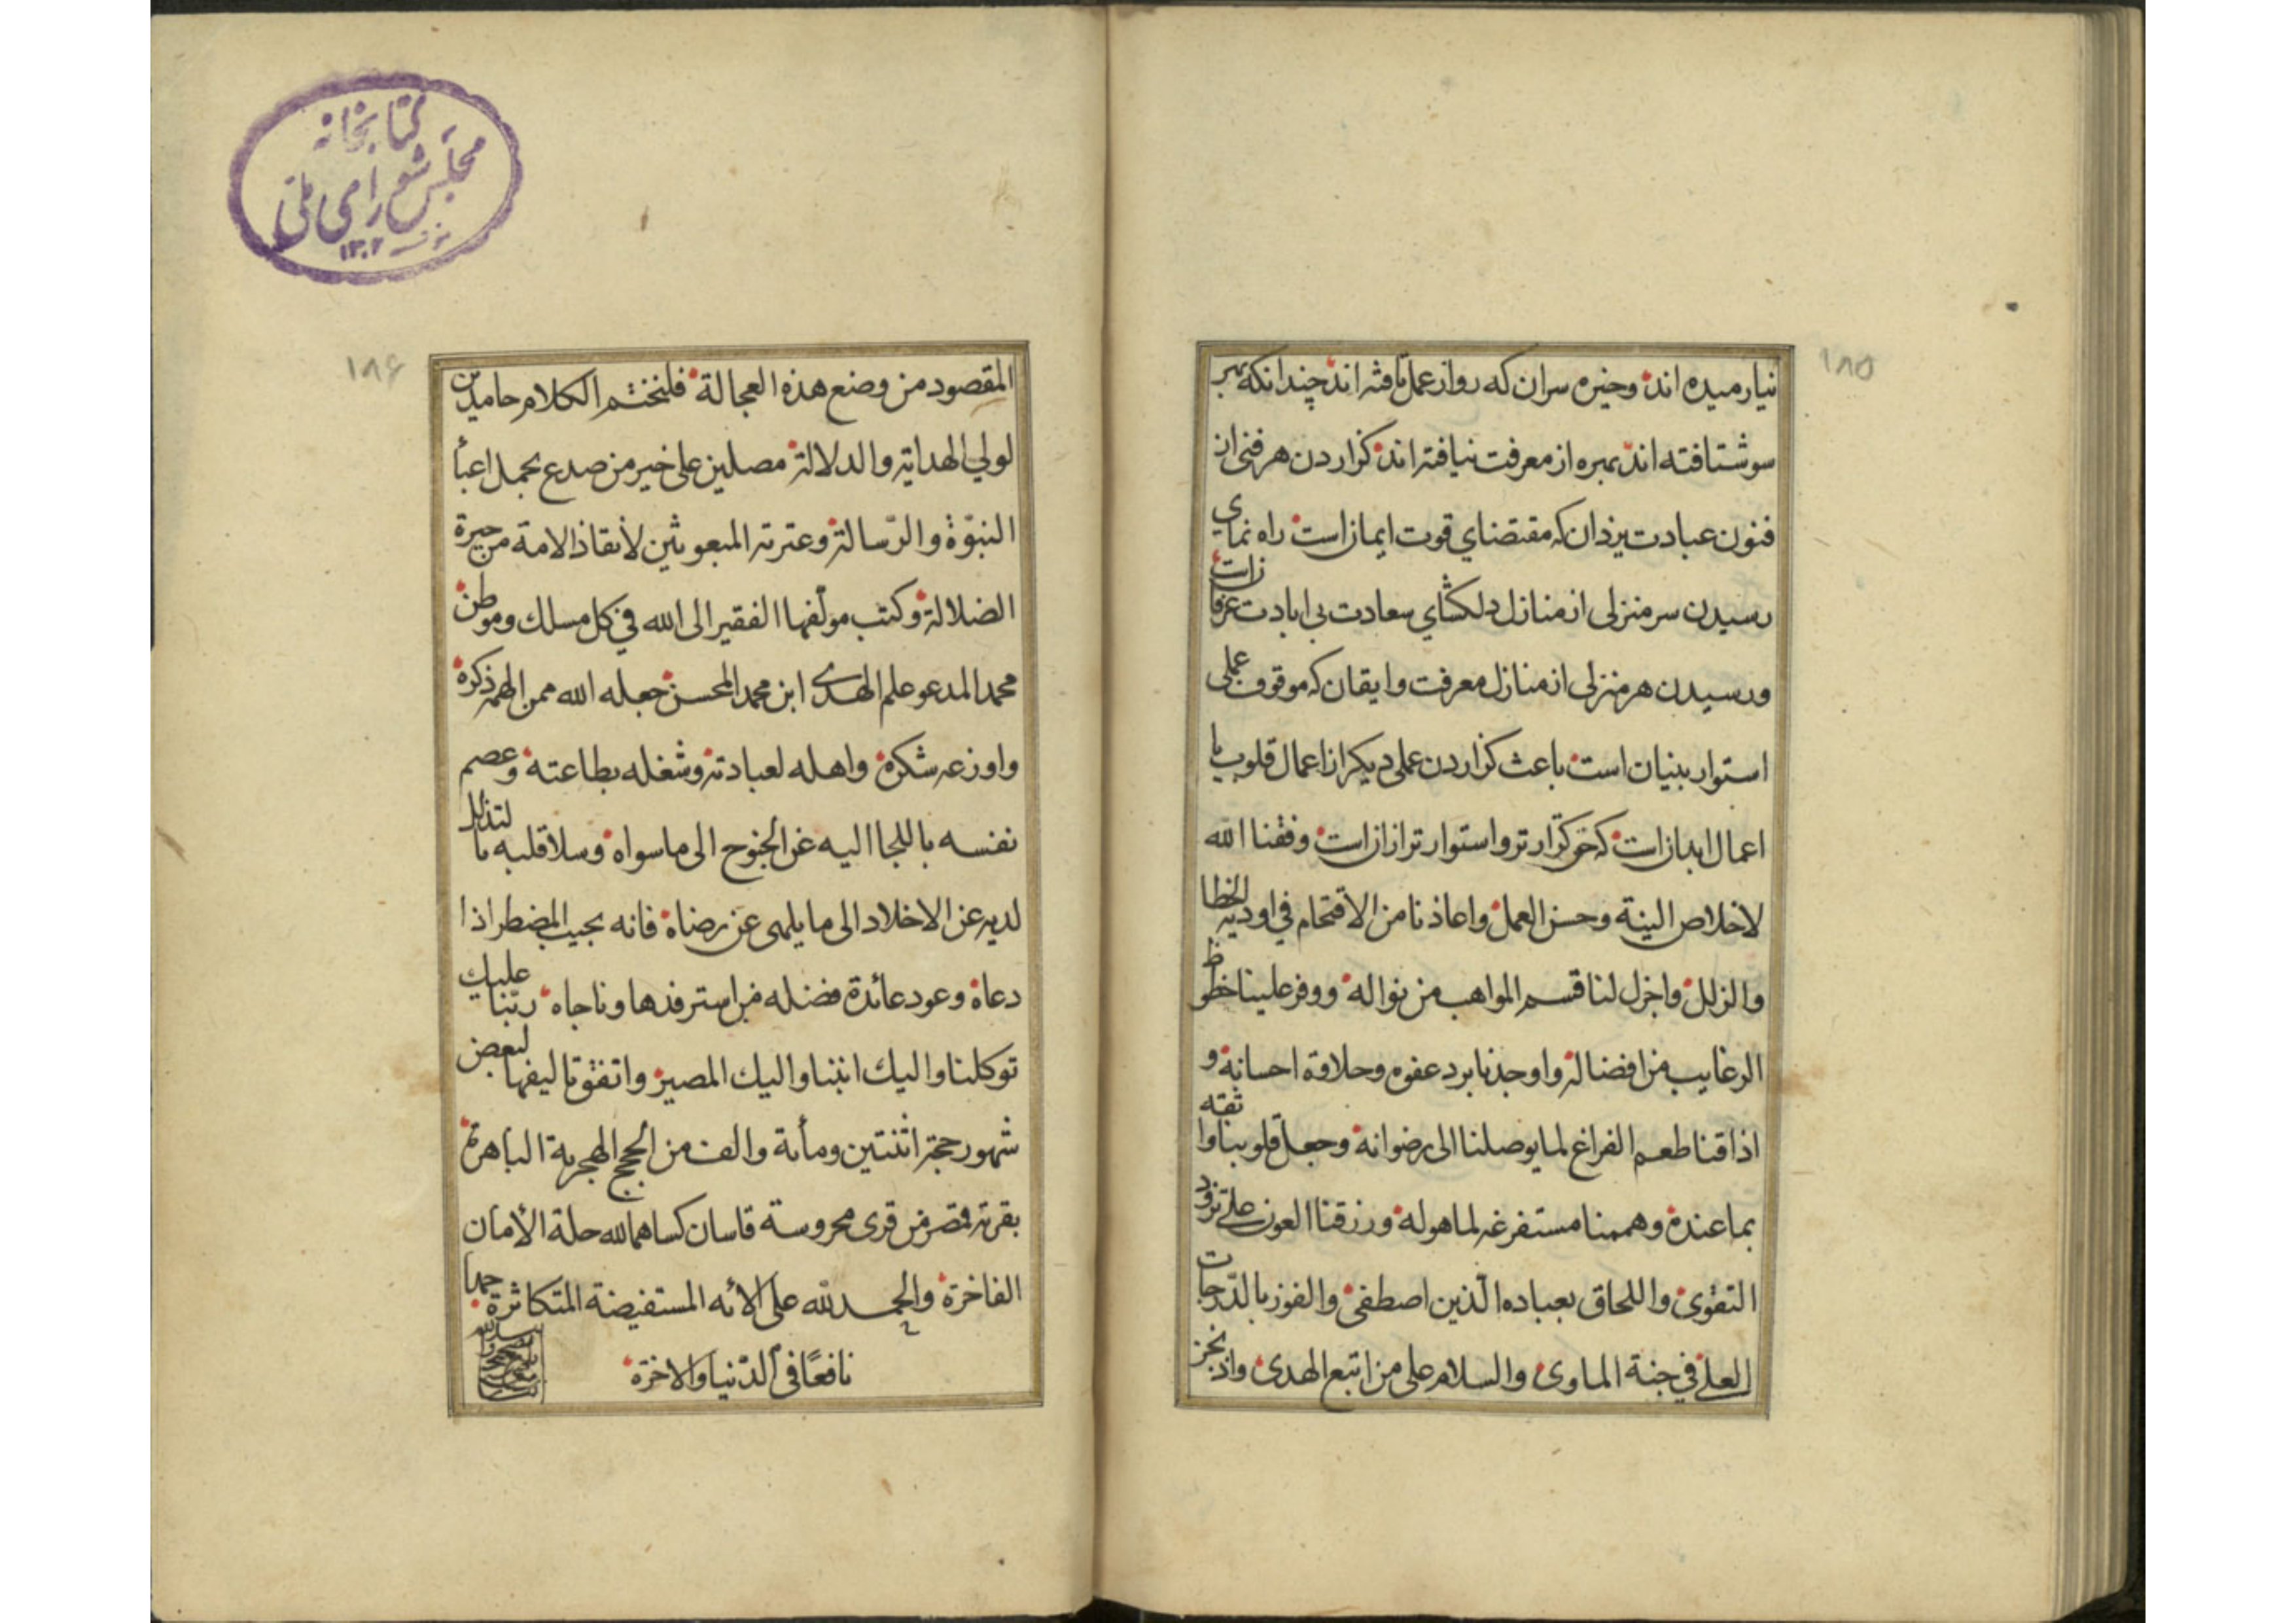 ۱۸۵
نیارمیده اند وخیره سران که رواز عمل تافته اند چندانکه بهر
سو شتافته اند بهره از معرفت نیافته اند کزاردن هر فنی از
فنون عبادت یزدان که مقتضای قوت ایمان است راه نمای
رسیدن سر منزلی از منازل دلکشای سعادت بی ابادت عرفانست
ورسیدن هر منزلی از منازل معرفت وایقان که موقوف علیه
استوار بنیان است باعث کزاردن عملی دیکر از اعمال قلوب یا
اعمال ابدانست که استوار تر از انست وفقنا الله
لاخلاص النیة وحسن العمل واعاذنا من الاقتحام فی اودیة الخطا
والزلل واجزل لنا قسم المواهب من نواله ووفر علینا حظوظ
الرغایب من افضاله واوجدنا برد عفوه وحلاوة احسانه و
اذاقنا طعم الفراغ لما یوصلنا الی رضوانه وجعل قلوبنا واثقة
بما عنده وهممنا مستفرغه لما هوله ورزقنا العون علی تزود
التقوی واللحاق بعباده الّذین اصطفی والفوز بالدّرجات
العلی فی جنة الماوی والسلام علی من اتبع الهدی واذ نجز
کتابخانه
مجلس شورای ملی
۱۳۰۲
۱۸۶
المقصود من وضع هذه العجالة فلنختم الکلام حامدین
لولی الهدایة والدلالة مصلین علی خیر من صدع بحمل اعبأ
النبوّة والرّسالة وعترته المبعوثین لانقاذ الامة من حیرة
الضلالة وکتب مولّفها الفقیر الی الله فی کل مسلك وموطن
محمد المدعو علم الهدی ابن محمد المحسن جعله الله ممن الهمه ذکره
واوزعه شکره واهله لعبادته وشغله بطاعته وعصم
نفسه باللجا الیه عن الجنوح الی ما سواه وسلا قلبه بالتذلل
لدیه عن الاخلاد الی ما یلهی عن رضاه فانه یجیب المضطر اذا
دعاه وعود عائدة فضله من استرفدها وناجاه ربّنا علیك
توکلنا والیك انبنا والیك المصیر واتفق تالیفها لبعض
شهور حجة اثنتین ومأة والف من الحجج الهجریة الباهرة
بقریة قمصر من قری محروسة قاسان کساها الله حلة الأمان
الفاخرة والحمد لله علی الائه المستفیضة المتکاثرة حمدا
نافعًا فی الدّنیا والاخرة